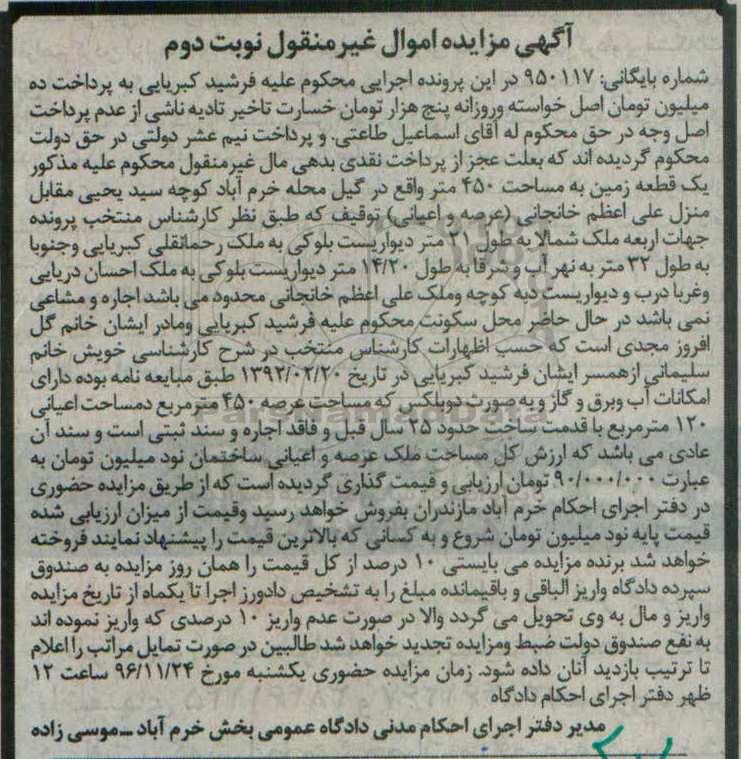 آگهی مزایده اموال غیرمنقول نوبت دوم
شماره بایگانی: ۹۵۰۱۱۷ در این پرونده اجرایی محکوم علیه فرشید کبریایی به پرداخت ده
میلیون تومان اصل خواسته وروزانه پنج هزار تومان خسارت تاخیر تادیه ناشی از عدم پرداخت
اصل وجه در حق محکوم له آقای اسماعیل طاعتی. و پرداخت نیم عشر دولتی در حق دولت
محکوم گردیده اند که بعلت عجز از پرداخت نقدی بدهی مال غیرمنقول محکوم علیه مذکور
یک قطعه زمین به مساحت ۴۵۰ متر واقع در گیل محله خرم آباد کوچه سید یحیی مقابل
منزل علی اعظم خانجانی (عرصه و اعیانی) توقیف که طبق نظر کارشناس منتخب پرونده
جهات اربعه ملک شمالا به طول ۲۱ متر دیواریست بلوکی به ملک رحمانقلی کبریایی وجنوبا
به طول ۳۲ متر به نهر آب و شرقا به طول ۱۴/۲۰ متر دیواریست بلوکی به ملک احسان دریایی
وغربا درب و دیواریست دبه کوچه وملک علی اعظم خانجانی محدود می باشد اجاره و مشاعی
نمی باشد در حال حاضر محل سکونت محکوم علیه فرشید کبریایی ومادر ایشان خانم گل
افروز مجدی است که حسب اظهارات کارشناس منتخب در شرح کارشناسی خویش خانم
سلیمانی ازهمسر ایشان فرشید کبریایی در تاریخ ۱۳۹۲/۰۲/۲۰ طبق مبایعه نامه بوده دارای
امکانات آب وبرق و گاز و به صورت دوبلکس که مساحت عرصه ۴۵۰ مترمربع دمساحت اعیانی
۱۲۰ مترمربع با قدمت ساخت حدود ۲۵ سال قبل و فاقد اجاره و سند ثبتی است و سند آن
عادی می باشد که ارزش کل مساحت ملک عرصه و اعیانی ساختمان نود میلیون تومان به
عبارت ۹۰/۰۰۰/۰۰۰ تومان ارزیابی و قیمت گذاری گردیده است که از طریق مزایده حضوری
در دفتر اجرای احکام خرم آباد مازندران بفروش خواهد رسید وقیمت از میزان ارزیابی شده
قیمت پایه نود میلیون تومان شروع و به کسانی که بالاترین قیمت را پیشنهاد نمایند فروخته
خواهد شد برنده مزایده می بایستی ۱۰ درصد از کل قیمت را همان روز مزایده به صندوق
سپرده دادگاه واریز الباقی و باقیمانده مبلغ را به تشخیص دادورز اجرا تا یکماه از تاریخ مزایده
واریز و مال به وی تحویل می گردد والا در صورت عدم واریز ۱۰ درصدی که واریز نموده اند
به نفع صندوق دولت ضبط ومزایده تجدید خواهد شد طالبین در صورت تمایل مراتب را اعلام
تا ترتیب بازدید آنان داده شود. زمان مزایده حضوری یکشنبه مورخ ۹۶/۱۱/۲۴ ساعت ۱۲
ظهر دفتر اجرای احکام دادگاه
مدیر دفتر اجرای احکام مدنی دادگاه عمومی بخش خرم آباد ــ موسی زاده
ParsNamadData